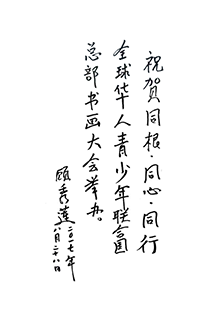 祝賀同根·同心·同行
全球华人青少年联会
总部书画大会举办。
顾秀莲
二〇一七年
八月二十八日